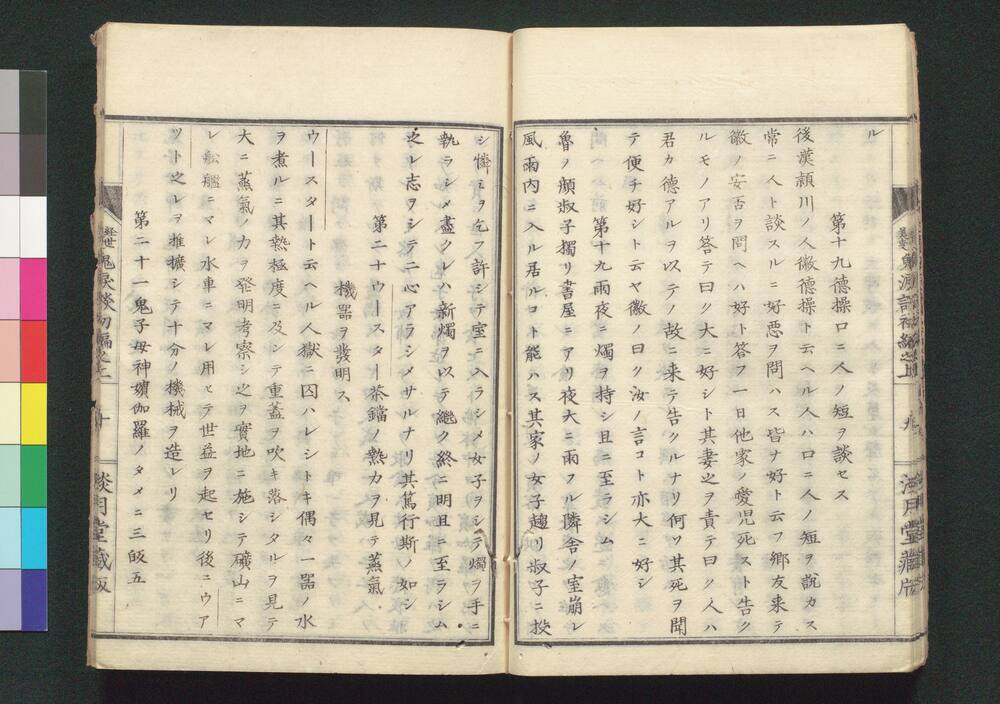 ル
第十九德操口ニ人ノ短ヲ談セス
後漢潁川ノ人徽德操ト云ヘル人ハ口ニ人ノ短ヲ說カス
常ニ人ト談スルニ好惡ヲ問ハス皆ナ好ト云フ鄕友来テ
徽ノ安否ヲ問ヘハ好ト答フ一日他家ノ愛児死スト告ク
ルモノアリ答テ曰ク大ニ好シト其妻之ヲ責テ曰ク人ハ
君カ德アルヲ以テノ故ニ来テ告クルナリ何ソ其死ヲ聞
テ便チ好シト云ヤ徽ノ曰ク汝ノ言コト亦大ニ好シ
第十九雨夜ニ燭ヲ持シ且ニ至ラシム
魯ノ顔叔子獨リ書屋ニアリ夜大ニ雨フル隣舎ノ室崩レ
風雨内ニ入ル居ルコト能ハス其家ノ女子趨リ叔子ニ投
シ憐ミヲ乞フ許シテ室ニ入ラシメ女子ヲシテ燭ヲ手ニ
執ラシメ盡クレハ新燭ヲ以テ繼ク終ニ明且ニ至ラシム
之レ志ヲシテ二心アラシメサルナリ其篤行斯ノ如シ
第二十ウースター茶鐺ノ熱カヲ見テ蒸氣
機噐ヲ發明ス
ウースタート云ヘル人獄ニ囚ハレシトキ偶々一噐ノ水
ヲ煮ルニ其熱極度ニ及ンテ重蓋ヲ吹キ落シタルヲ見テ
大ニ蒸氣ノ力ヲ發明考察シ之ヲ實地ニ施シテ礦山ニマ
レ舩艦ニマレ水車ニマレ用ヒテ世益ヲ起セリ後ニウア
ツト之レヲ推擴シテ十分ノ機械ヲ造レリ
第二十一鬼子母神嬪伽羅ノタメニ三皈五
經世
鬼涙談初編之上
十
淡月堂藏版